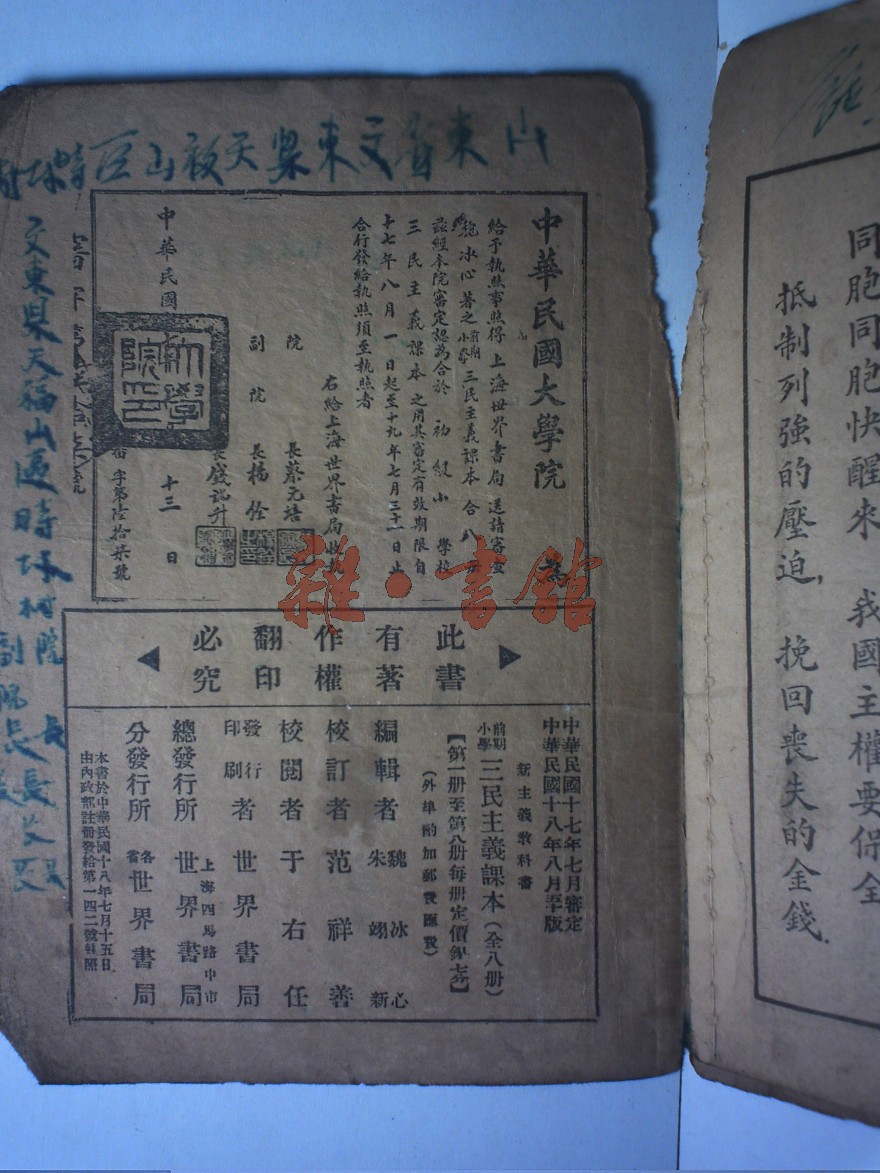 同胞同胞快醒來 我國主權要保全
抵制列強的壓迫, 挽回喪失的金錢.
山東省文東縣天福山區時
文東縣天福山區時 村
中華民國大學院 為
給予執照事照得 上海世界書局 送請審查
魏冰心著之 前期小學 三民主義課本 合八冊
茲經本院審定認為合於 初級小 學校
三民主義課本 之用其審定有效期限自
十七年八月一日起至十九年七月三十一日止
合行發給執照須至執照者
右給上海世界書局收執
院 長蔡元培
副院 長楊銓
長錢端升
中華民國 十三 日
字第陸拾柒號
雜·書館
此書
有著
作權
翻印
必究
中華民國十七年七月審定
中華民國十八年八月 版
新主義教科書
前期小學 三民主義課本(全八册)
【第一册至第八册每册定價銀七分】
(外埠酌加郵費匯費)
編輯者 魏冰心 朱翊新
校訂者 范祥善
校閱者 于右任
發行印刷者 世界書局
總發行所 上海四馬路中市 世界書局
分發行所 各省 世界書局
本書於中華民國十八年七月十五日
由內政部註冊發給第一四二號執照
副院長
院長